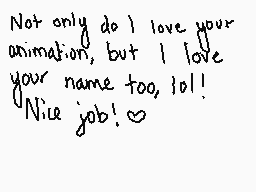 Not only do I love your
animation, but I love
your name too, lol!
Nice job! ♡